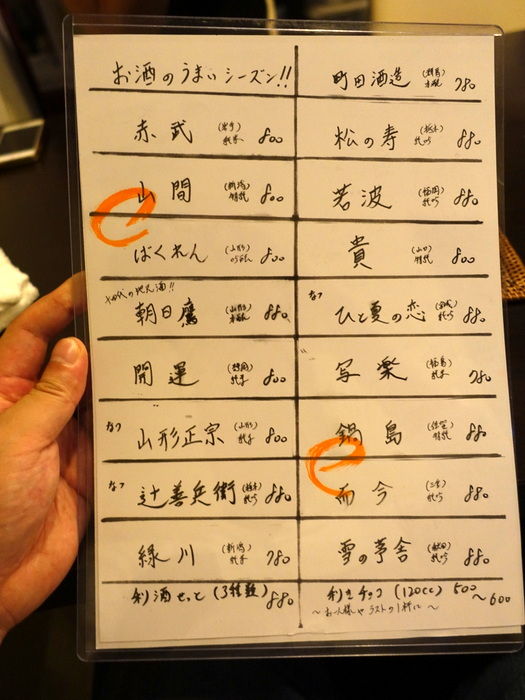 お酒のうまいシーズン!!
赤武 (岩手) 純米 800
山間 (新潟) 特純 800
ばくれん (山形) 吟醸 800
十四代の地元酒!!
朝日鷹 (山形) 本醸 880
開運 (静岡) 純米 800
なつ 山形正宗 (山形) 純米 800
なつ 辻善兵衛 (栃木) 純吟 880
緑川 (新潟) 純米 780
利酒せっと (3種類) 880
町田酒造 (群馬) 本醸 780
松の寿 (栃木) 純吟 880
若波 (福岡) 純吟 880
貴 (山口) 特純 800
なつ ひと夏の恋 (宮城) 純吟 880
写楽 (福島) 純米 780
鍋島 (佐賀) 特純 880
而今 (三重) 純吟 880
雪の茅舎 (秋田) 純吟 880
利きチョコ (120cc) 500〜600
〜お一人様やラストの1杯に〜